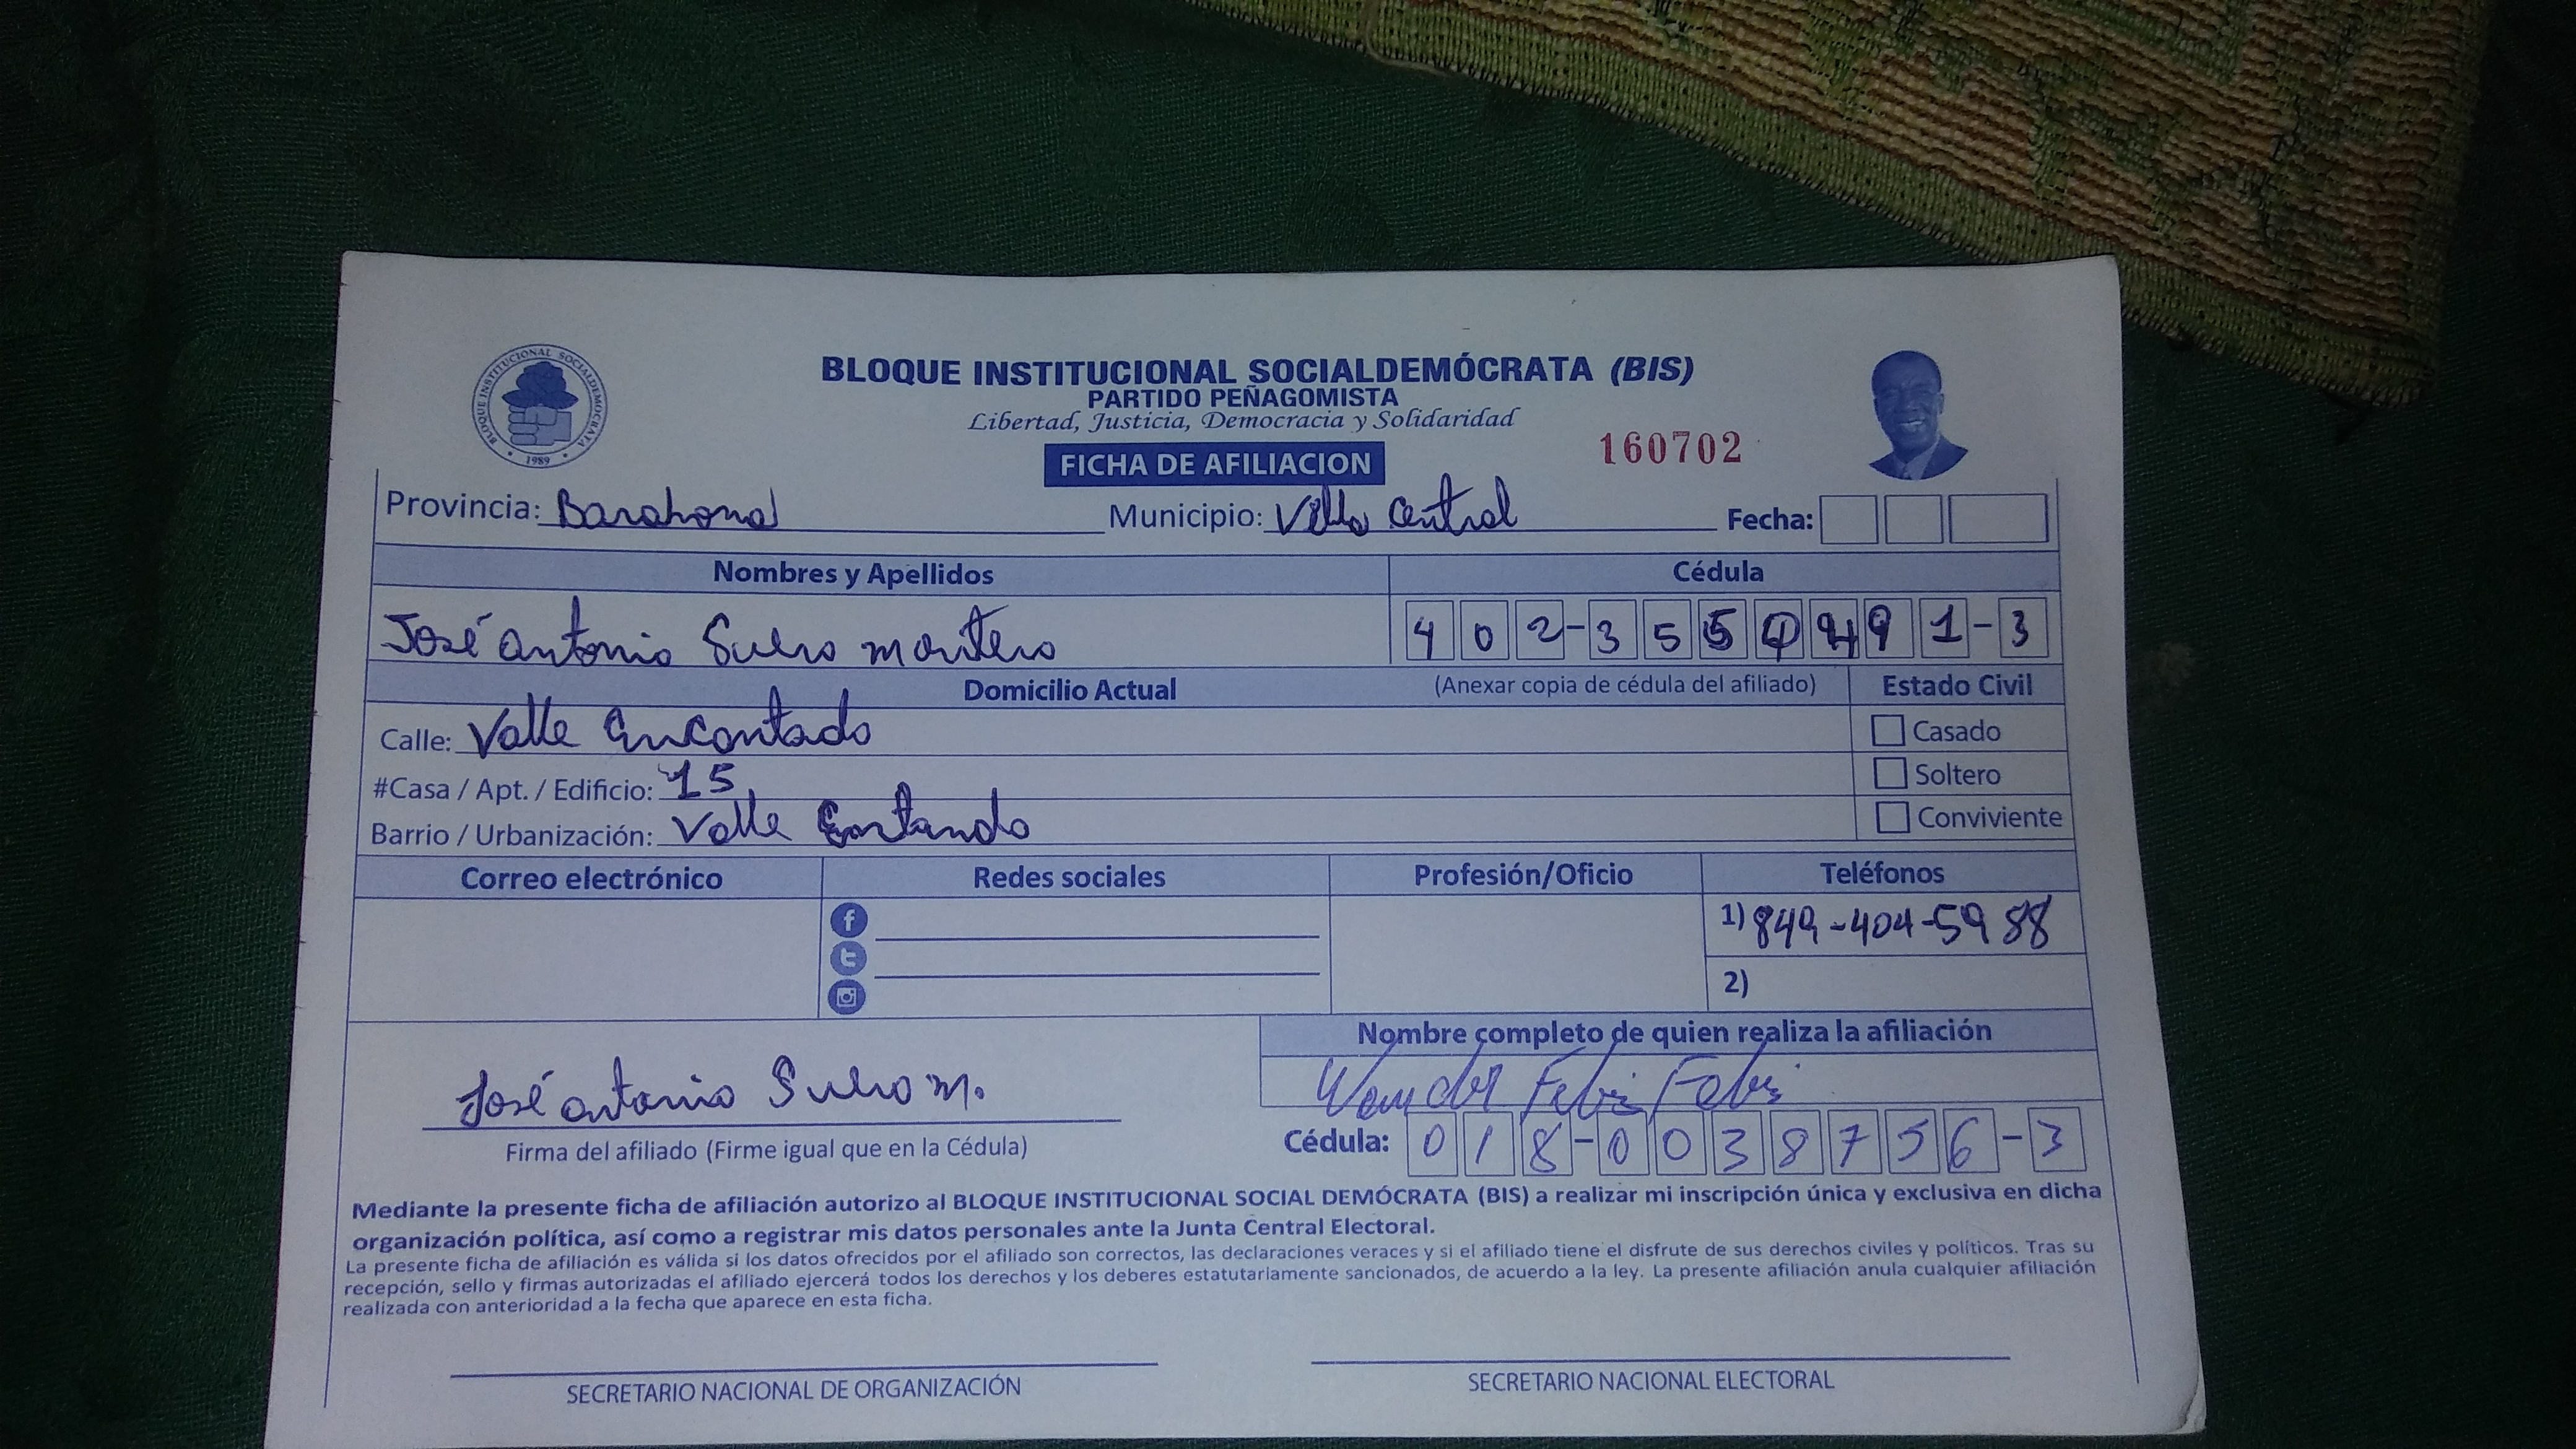 BLOQUE INSTITUCIONAL SOCIALDEMÓCRATA (BIS)
PARTIDO PEÑAGOMISTA
Libertad, Justicia, Democracia y Solidaridad
BLOQUE INSTITUCIONAL SOCIALDEMOCRATA
1989
FICHA DE AFILIACION
160702
Provincia: Barahona Municipio: Villa Central Fecha:
Nombres y Apellidos Cédula
José Antonio Suero montero 402-355 1-3
Domicilio Actual (Anexar copia de cédula del afiliado) Estado Civil
Calle: Valle Encantado
Casado
#Casa / Apt. / Edificio: 15
Soltero
Barrio / Urbanización: Valle
Conviviente
Correo electrónico Redes sociales Profesión/Oficio Teléfonos
1) 849-404-5988
2)
Nombre completo de quien realiza la afiliación
Feliz Feliz
José antonio Suero m.
Firma del afiliado (Firme igual que en la Cédula)
Cédula: 018-0038756-3
Mediante la presente ficha de afiliación autorizo al BLOQUE INSTITUCIONAL SOCIAL DEMÓCRATA (BIS) a realizar mi inscripción única y exclusiva en dicha
organización política, así como a registrar mis datos personales ante la Junta Central Electoral.
La presente ficha de afiliación es válida si los datos ofrecidos por el afiliado son correctos, las declaraciones veraces y si el afiliado tiene el disfrute de sus derechos civiles y políticos. Tras su
recepción, sello y firmas autorizadas el afiliado ejercerá todos los derechos y los deberes estatutariamente sancionados, de acuerdo a la ley. La presente afiliación anula cualquier afiliación
realizada con anterioridad a la fecha que aparece en esta ficha.
SECRETARIO NACIONAL DE ORGANIZACIÓN SECRETARIO NACIONAL ELECTORAL